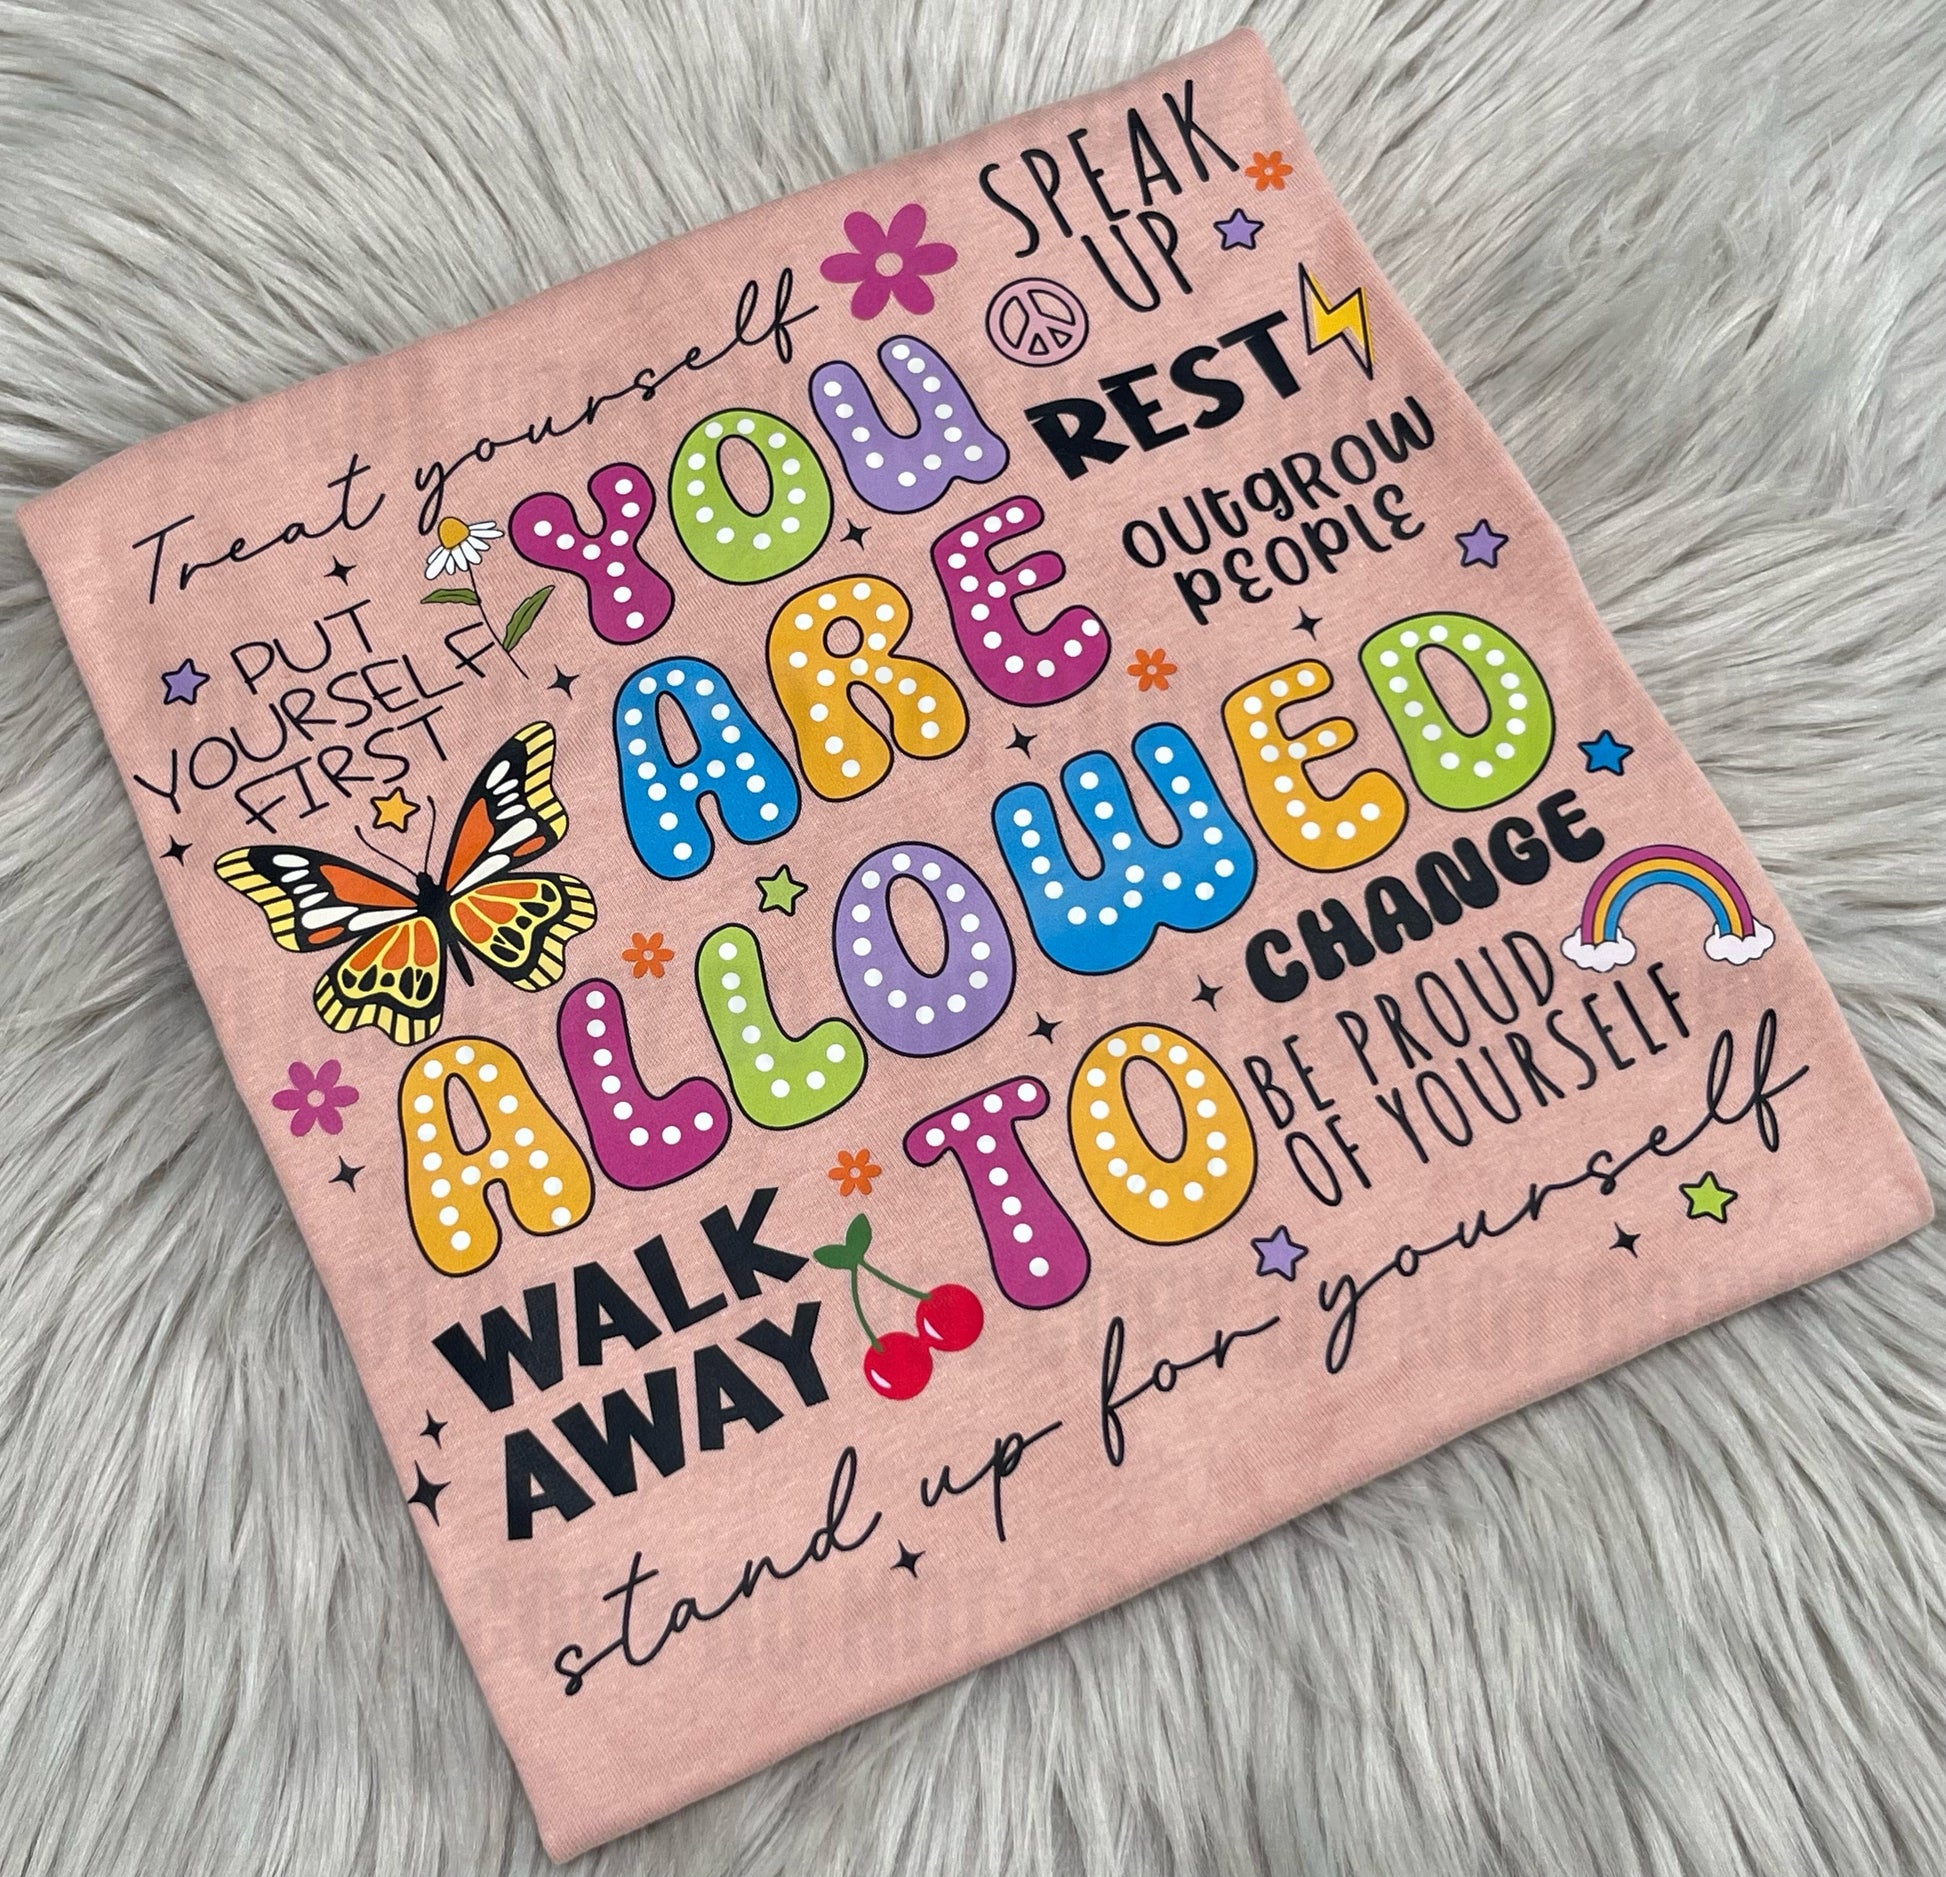 SPEAK
UP
Treat yourself
REST
YOU
OUTGROW
PEOPLE
PUT
YOURSELF
FIRST
ARE
ALLOWED
CHANGE
TO
BE PROUD
OF YOURSELF
WALK
AWAY
stand up for yourself